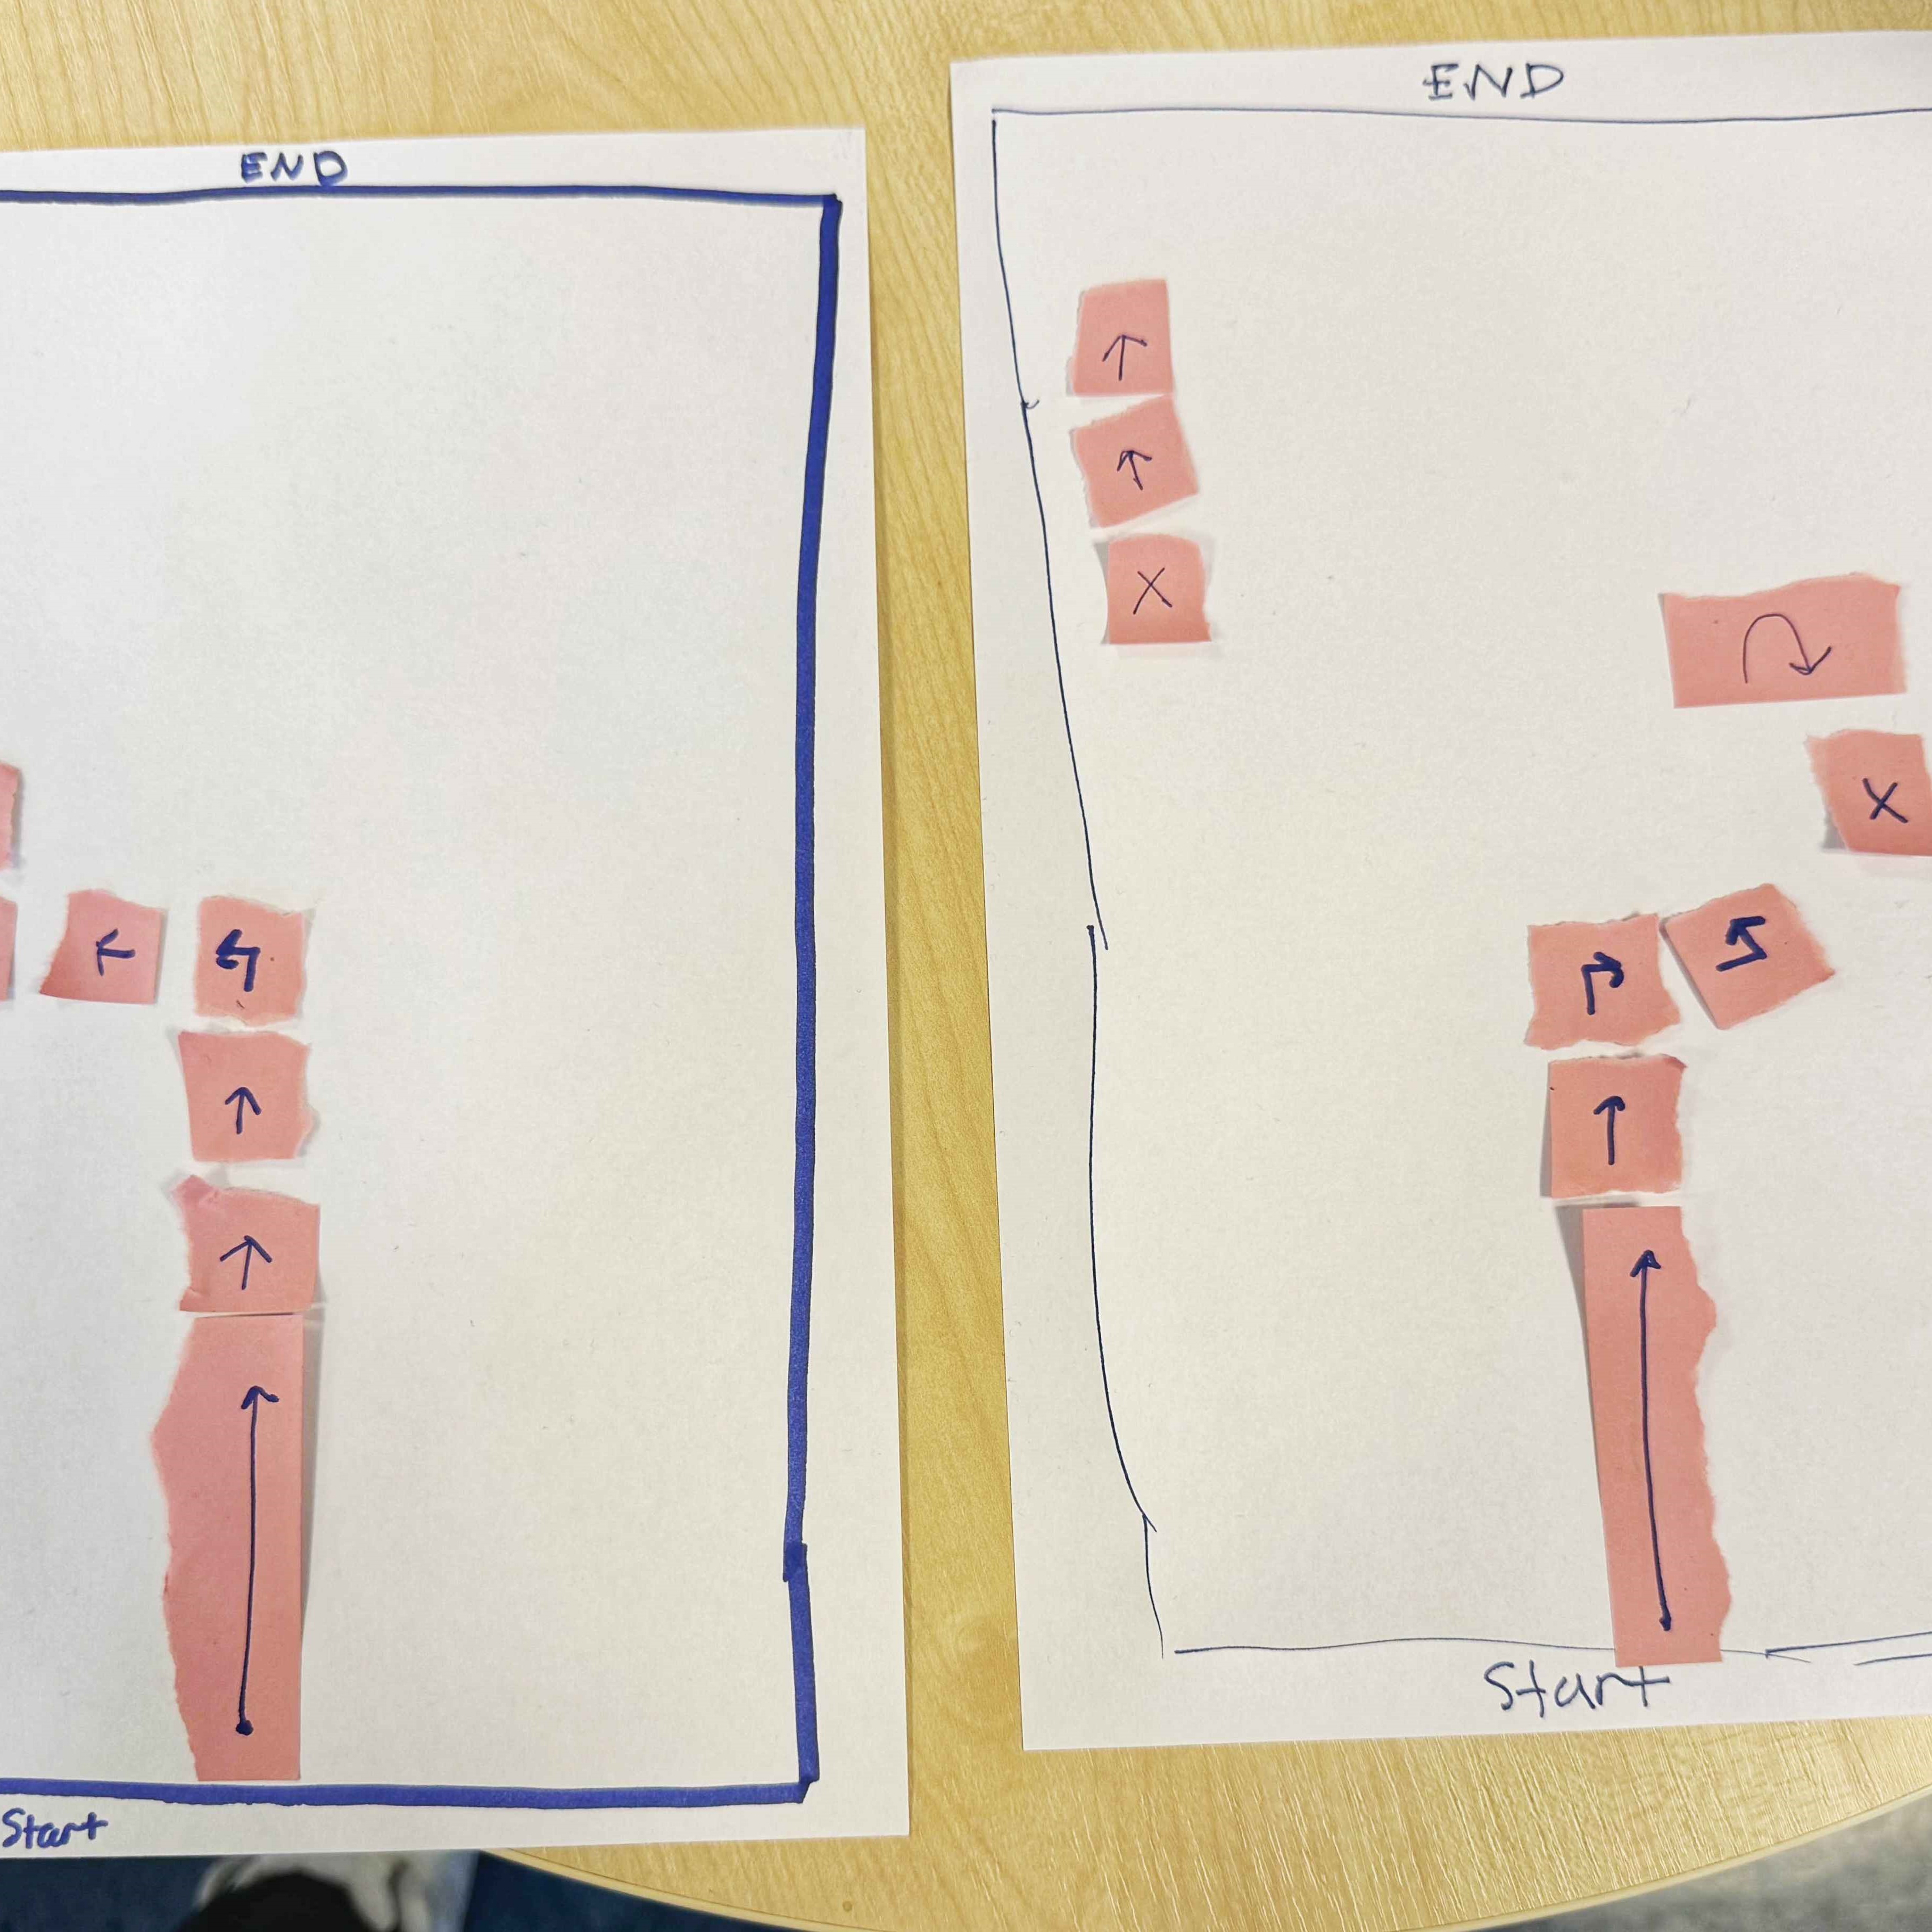 END
Start
END
X
X
Start